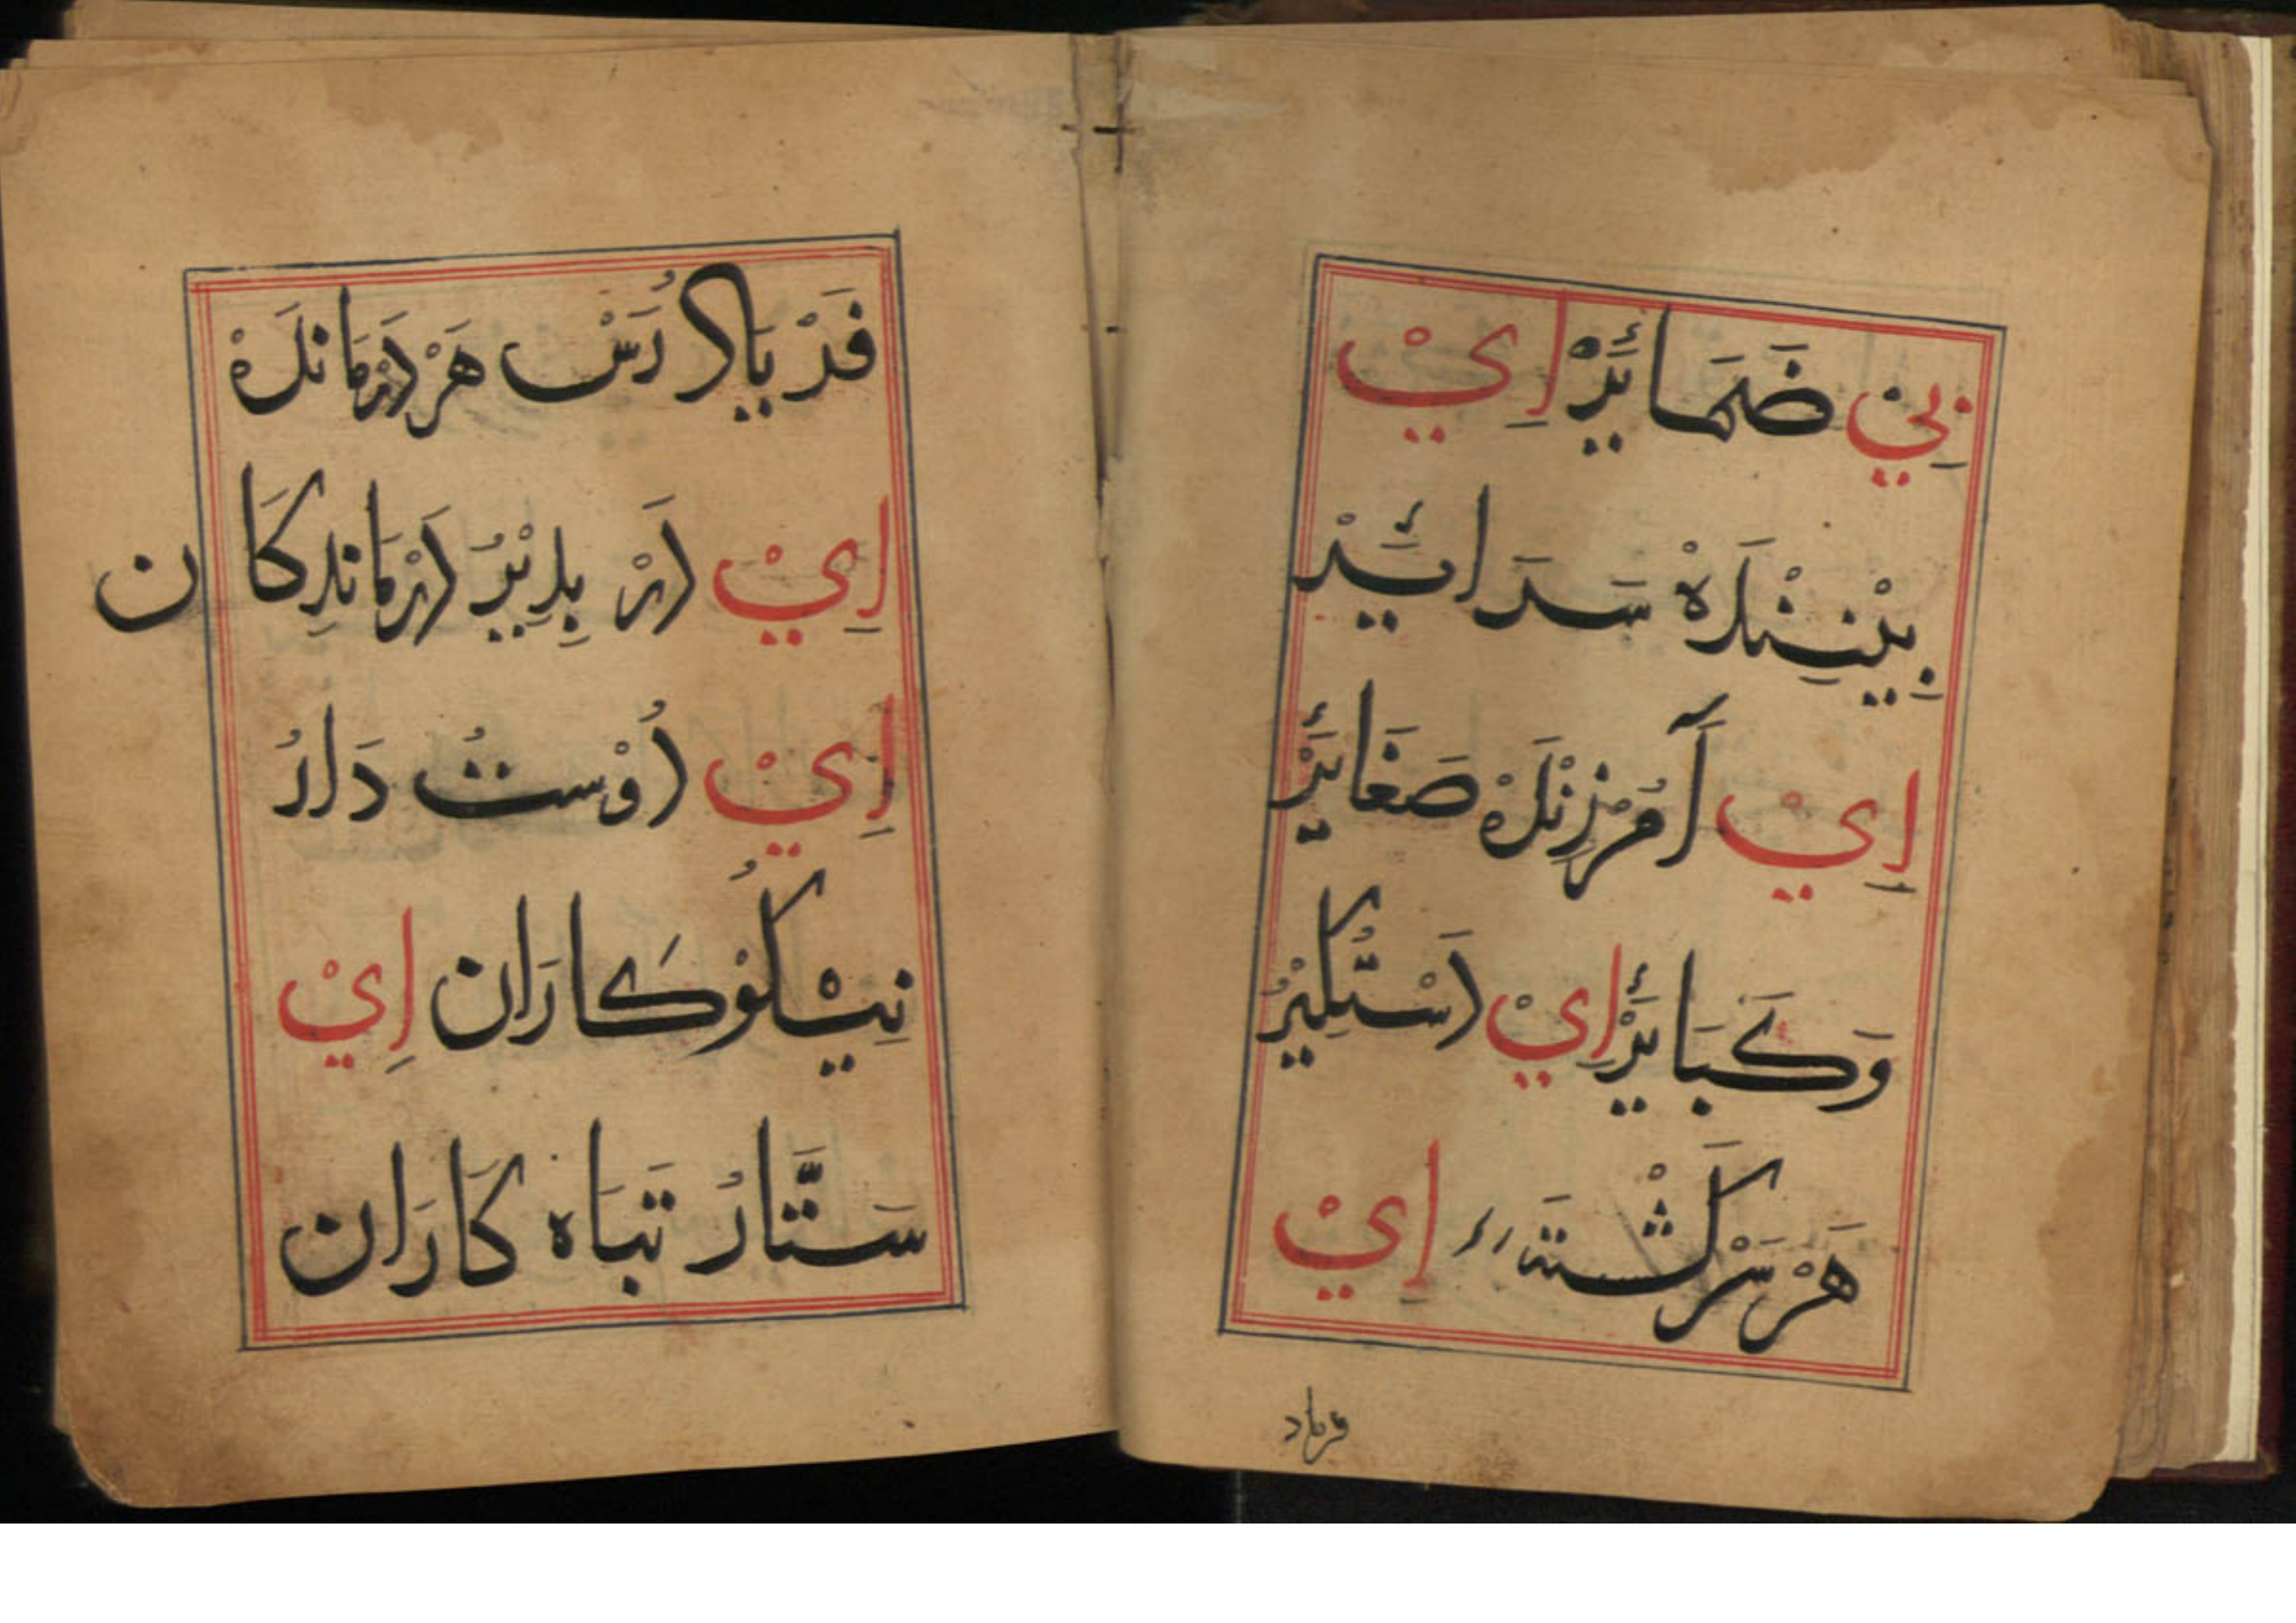 بِيْ ضَمَائَرْ اِيْ
بِيْنِنْدَهْ سَرَائَيْرْ
اِيْ آمُرْزِنْدَهْ صَغَائَرْ
وَكَبَائَرْ اِيْ دَسْتْكِيْرُ
هَرْ سَرْكَشْتَهٔ اِيْ
فرياد
فَرْيَادْ رَسْ هَرْ دَرْمَانْدَهْ
اِيْ دَرْ بِذِيْرُ دَرْمَانْدِكَان
اِيْ دُوْسْتُ دَارُ
نِيْكُوْكَارَان اِيْ
سَتَّارُ تَبَاه كَارَان